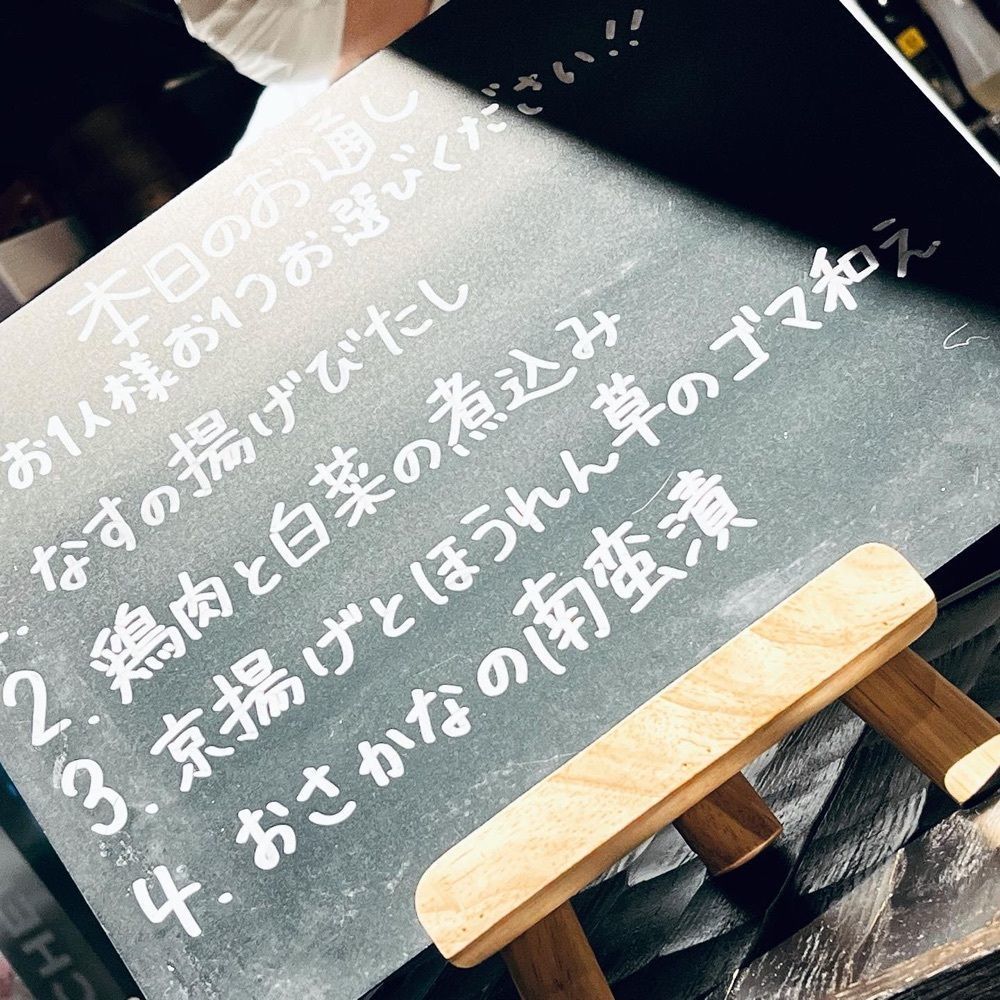 本日のお通し
お1人様お1つお選びください!!
1. なすの揚げびたし
2. 鶏肉と白菜の煮込み
3. 京揚げとほうれん草のゴマ和え
4. おさかなの南蛮漬